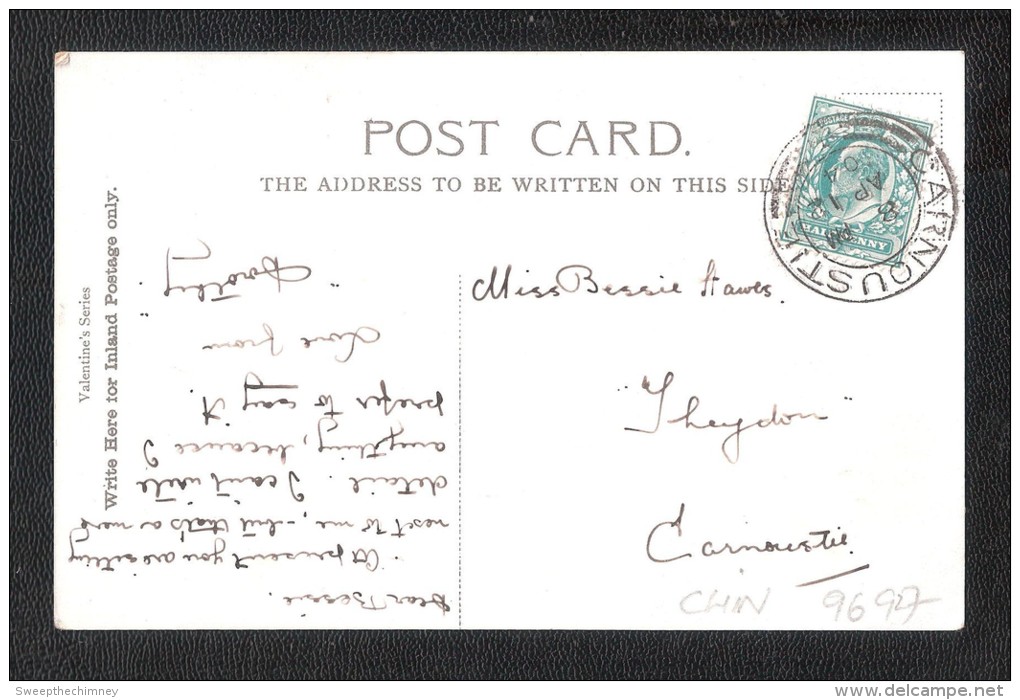 POST CARD.
THE ADDRESS TO BE WRITTEN ON THIS SIDE
Valentine's Series
Write Here for Inland Postage only.
Dear Bessie.
At present you are sitting
next to me, - but that's a mere
detail. I can't write
anything, because I
prefer to say it.
Love from
"Dorothy"
Miss Bessie Hawes.
"Theydon"
Carnoustie.
POSTAGE
HALFPENNY
CARNOUSTIE
8 PM
AP 14
04
CHIN 9697
Sweepthechimney
www.delcampe.net